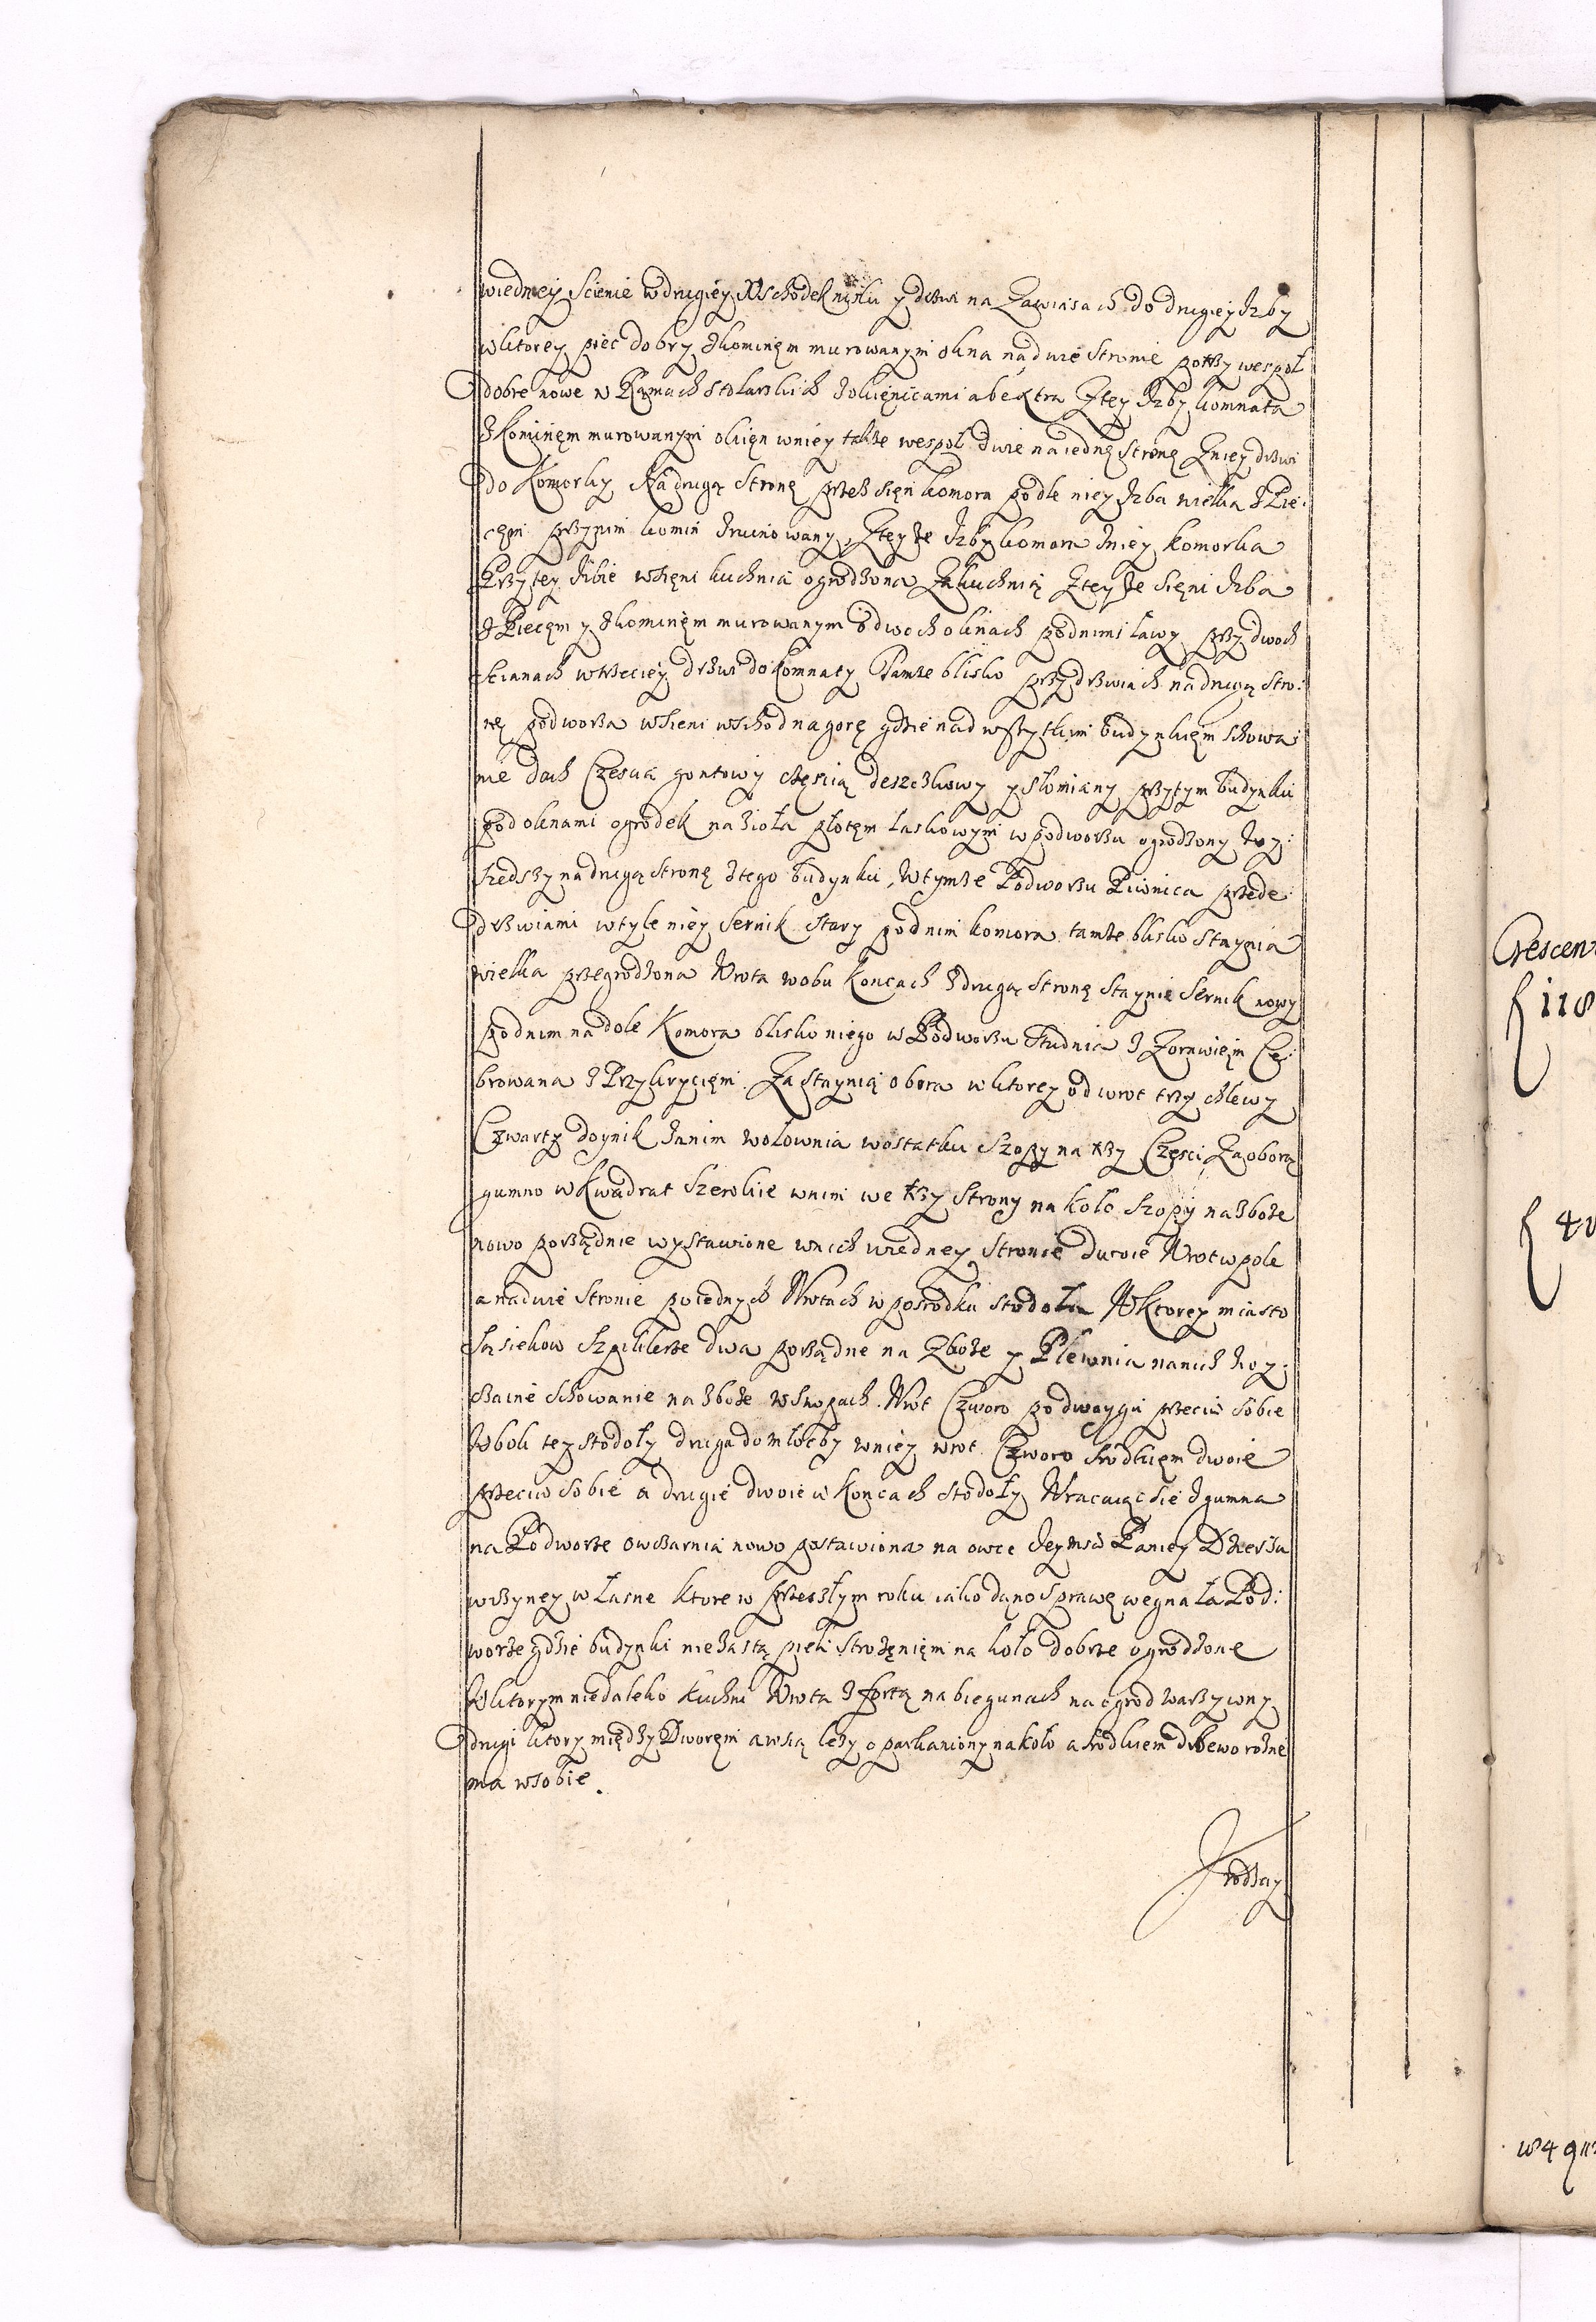 wiedney Scienie wdrugiey Wschodek nisku y drzwi na Zawiasach do drugiey Izby
wktorey piec dobry Zkominęm murowanym okna nadwie Stronie potrzy wespoł
dobre nowe w Ramach Stolarskich Zokięnicami ab extra Ztey Izby komnata
Zkominęm murowanym okięn wniey także wespoł dwie naiednę Stronę Zniey drzwi
do Komorky Nadrugą Stronę przez sięn komora podle niey Izba wielka Z Pie:
cęm przynim komin Zruinowany, Zteyże Izby komora Zniey komorka
Przytey Izbie wsięni kuchnia ogrodzona Zakuchnią Zteyże Sięni Izba
Z Piecęm y Zkominęm murowanym o dwoch oknach podnimi ławy przy dwoch
scianach wtrzeciey drzwi do Komnaty Tamże blisko przydrzwiach nadrugą Stro:
nę podworza wsieni wschod nagorę gdzie nad wszytkim budynkięm Schowa:
nie dach Częscią gontowy częscią deszczkowy y słomiany przytym budynku
pod oknami ogrodek na Zioła płotęm laskowym wpodworzu ogrodzony Wy:
szedszy nadrugą stronę Ztego budynku, Wtymże Podworzu Piwnica przede
drzwiami wtyle niey Sernik Stary podnim komora tamże blisko Staynia
wielka przegrodzona Wrota wobu Koncach Zdrugą Stronę Staynie Sernik nowy
podnim nadole Komora blisko niego w Podworzu Studnia Z Zorawięm Cę:
browana Z Przykrycięm. Za Staynią obora wktorey od wrot trzy chlewy
Czwarty doynik Zanim wołownia wostatku Szopy na trzy Częsci, Zaoborą
gumno wKwadrat Szerokie wnim we trzy Strony na koło Szopy na Zboże
nowo porządnie wystawione wnich wiedney Stronie dwoie Wrot wpole
a nadwie Stronie poiednych Wrotach wposrodku stodoła Wktorey miasto
Sąsiekow Szpiklerze dwa porządne na Zboże y Plewnia nanich Zwy:
czaine Schowanie na Zboże wSnopach. Wrot Czworo podwoygu przeciw Sobie
Wboku tey stodoły druga domłocby wniey wrot Czworo srodkięm dwoie
przeciw Sobie a drugie dwoie w Koncach Stodoły Wracaiąc sie Zgumna
na Podworze owczarnia nowo postawiona na owce Jeymsci Paniey Dzierza
wczyney własne ktore w przeszłym roku iako dano sprawę wegnała Pod:
worze gdzie budynki niezastą pieli Strożęnięm na koło dobrze ogrodzone
Wktorym niedaleko Kuchni Wrota Z fortą nabiegunach na ogrod warzywny
drugi ktory między Dworęm awsią leży oparkaniony nakoło a srodkiem drzewo rożne
ma wsobie.
Crescen
f 118
f 40
w 4 q